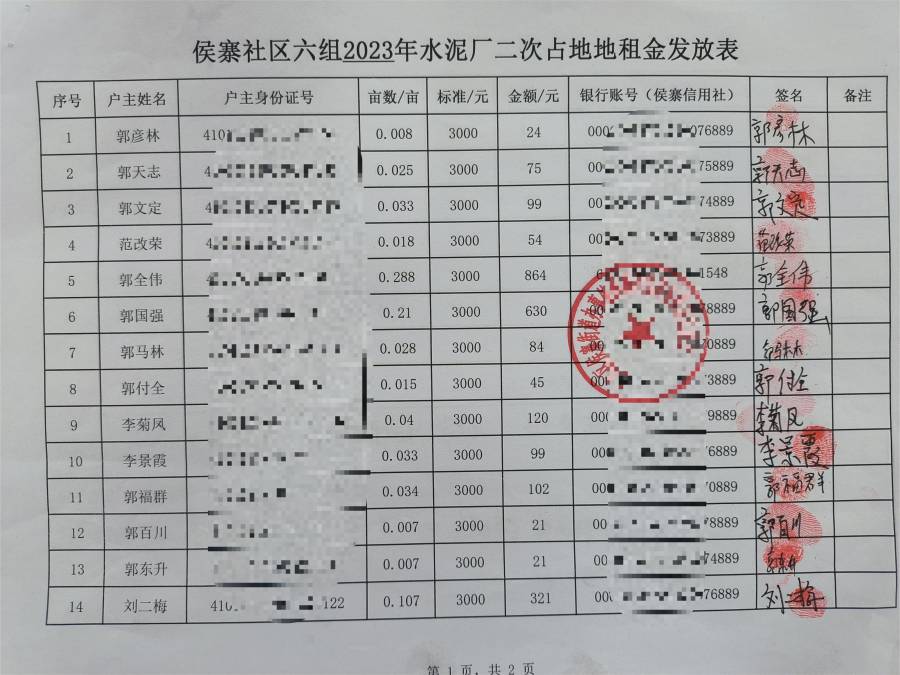 侯寨社区六组2023年水泥厂二次占地地租金发放表
序号 户主姓名 户主身份证号 亩数/亩 标准/元 金额/元 银行账号（侯寨信用社） 签名 备注
1 郭彦林 410 0.008 3000 24 000 076889 郭彦林
2 郭天志 4 0.025 3000 75 00 075889 郭天志
3 郭文定 4 0.033 3000 99 00 074889 郭文定
4 范改荣 4 0.018 3000 54 00 073889 范改荣
5 郭全伟 0.288 3000 864 1548 郭全伟
6 郭国强 0.21 3000 630 00 078889 郭国强
7 郭马林 0.028 3000 84 00 70889
8 郭付全 0.015 3000 45 00 73889 郭付全
9 李菊凤 0.04 3000 120 00 9889 李菊凤
10 李景霞 0.033 3000 99 00 76889 李景霞
11 郭福群 0.034 3000 102 00 78889 郭福群
12 郭百川 0.007 3000 21 00 78889 郭百川
13 郭东升 0.007 3000 21 00 74889
14 刘二梅 410 122 0.107 3000 321 00 76889 刘二梅
第 1 页，共 2 页